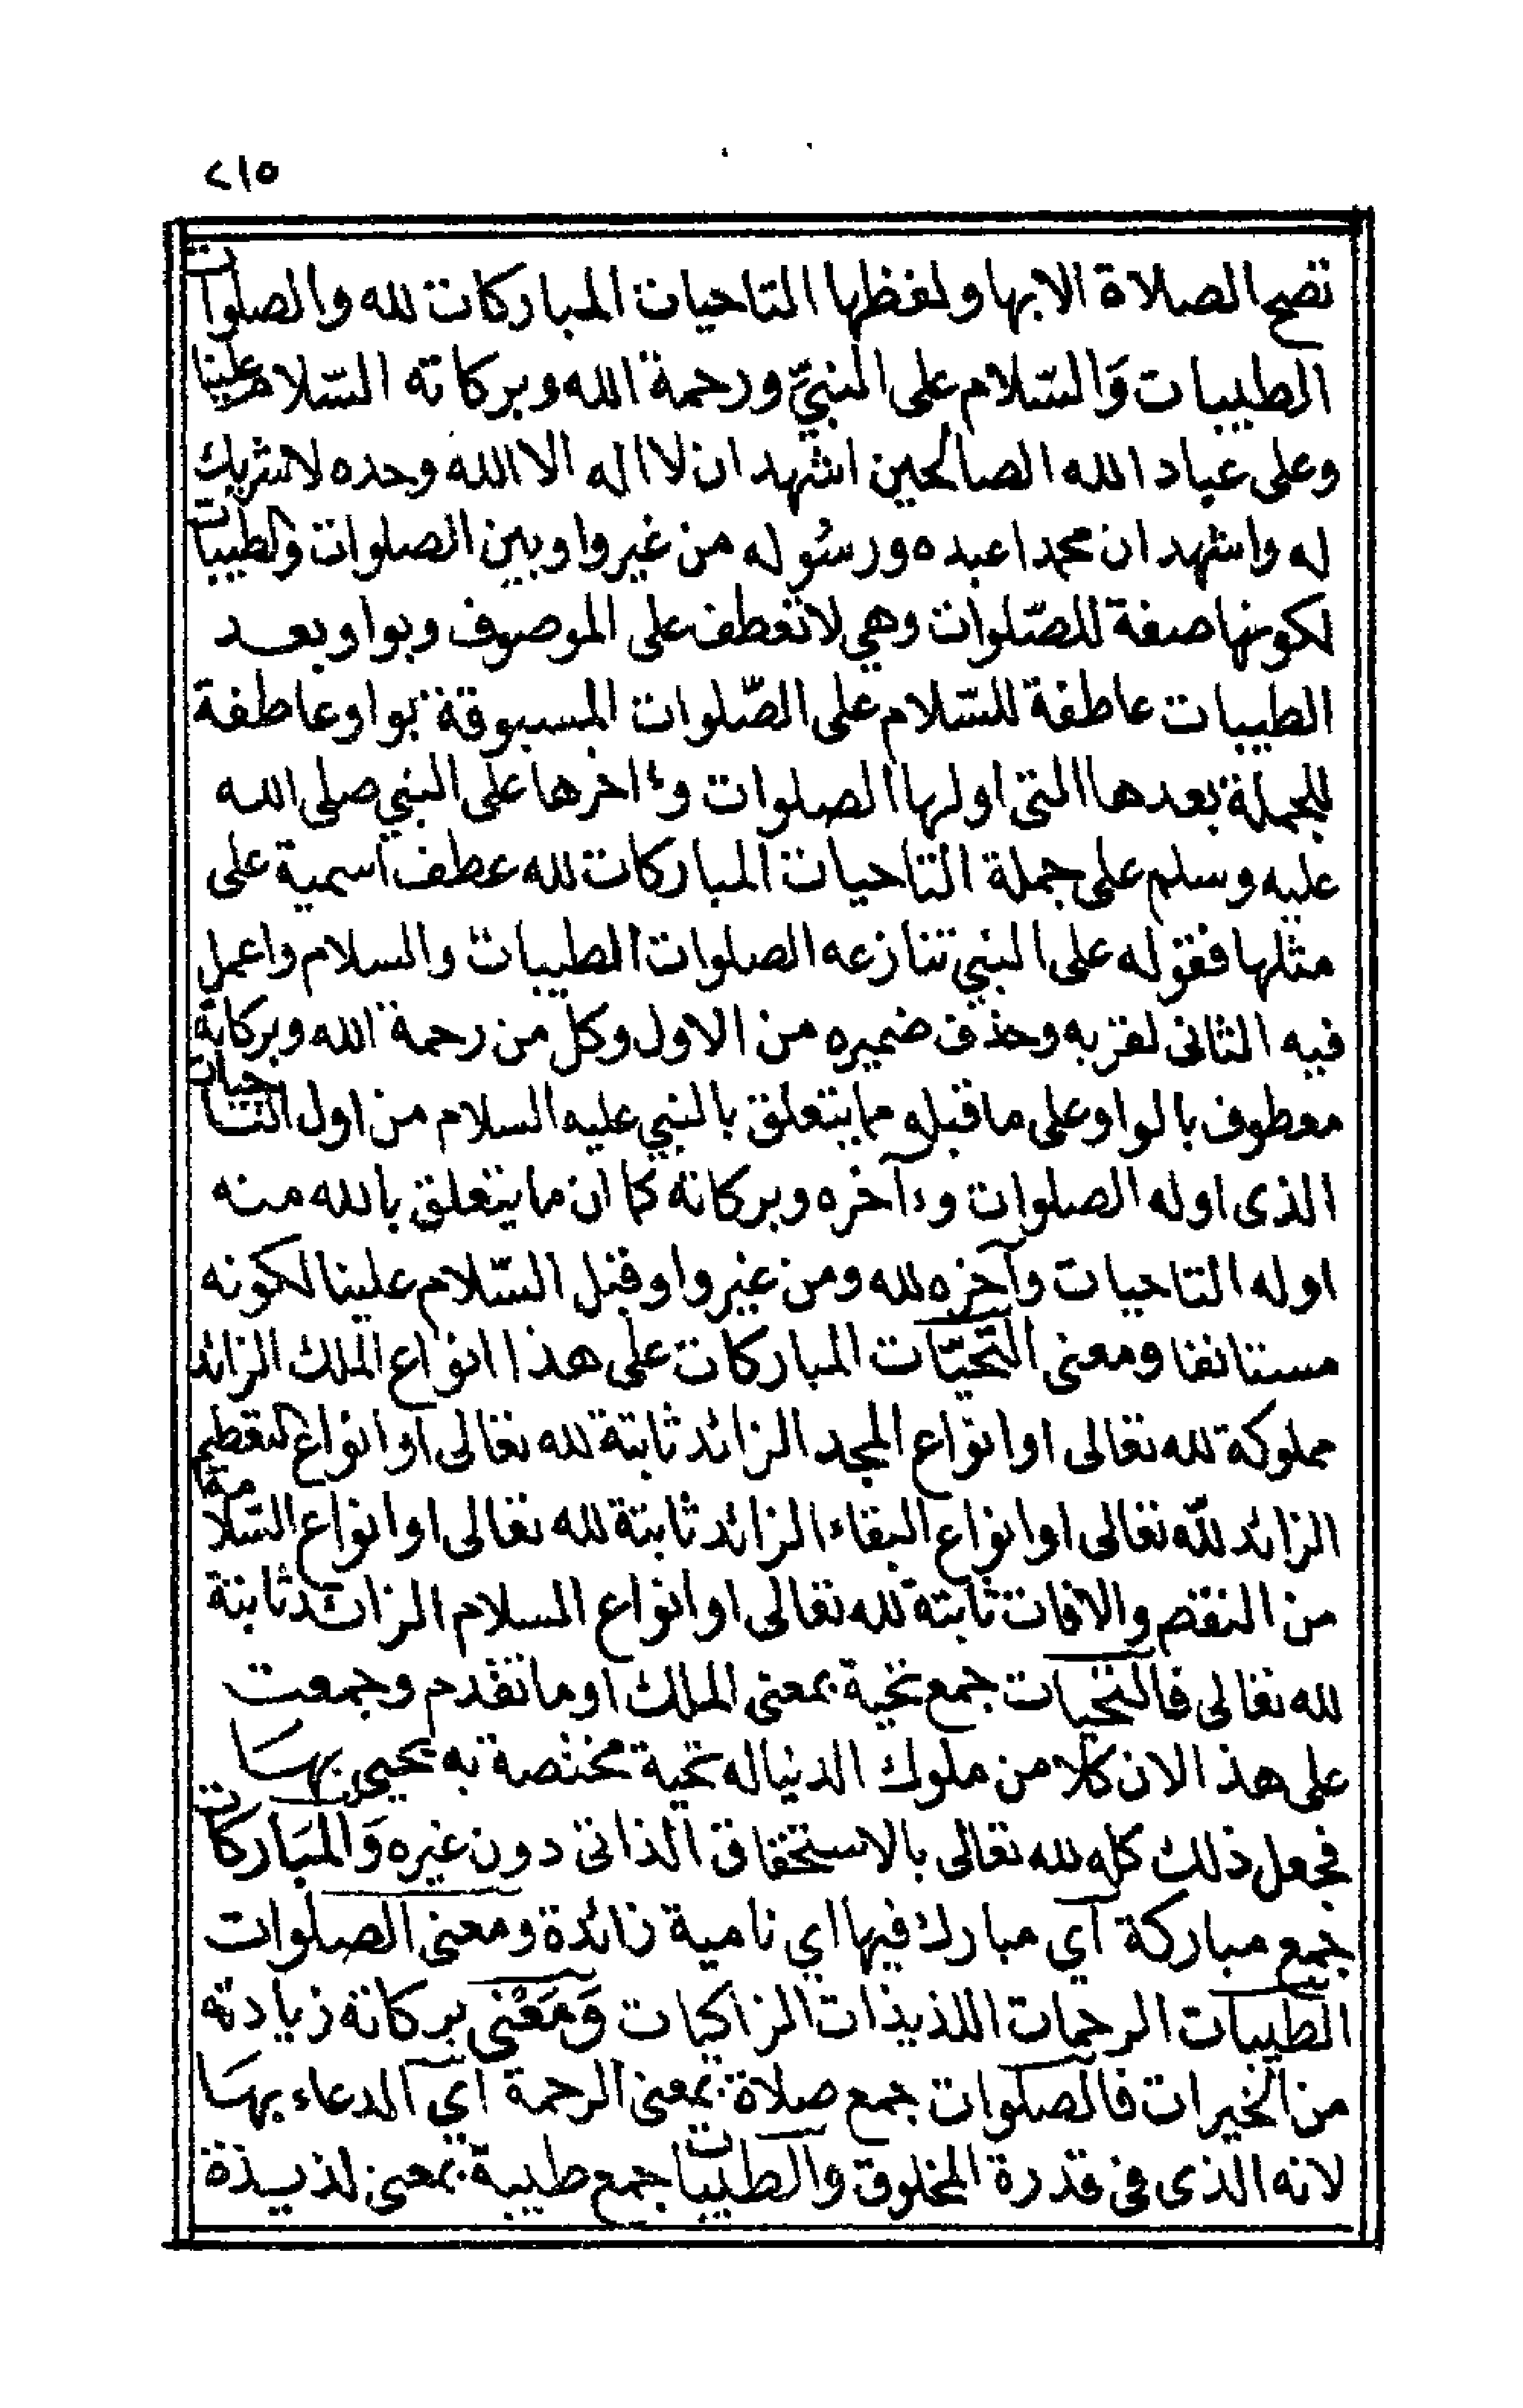 ٢١٥
تصح الصلاة الا بها ولفظها التاحيات المباركات لله والصلوات
الطيبات وَالسّلام على النبيّ ورحمة الله وبركاته السّلام علينا
وعلى عباد الله الصالحين اشهد ان لا اله الا الله وحده لا شريك
له واشهد ان محمدا عبده ورسُوله من غير واو بين الصلوات والطيبات
لكونها صفة للصّلوات وهي لا تعطف على الموصوف وبواو بعد
الطيبات عاطفة للسّلام على الصّلوات المسبوقة بواو عاطفة
للجملة بعدها التى اولها الصلوات وءاخرها على النبي صلى الله
عليه وسلم على جملة التاحيات المباركات لله عطف اسمية على
مثلها فقوله على النبي تنازعه الصلوات الطيبات والسلام واعمل
فيه الثانى لقربه وحذف ضميره من الاول وكل من رحمة الله وبركاته
معطوف بالواو على ما قبله مما يتعلق بالنبي عليه السلام من اول التاحيات
الذى اوله الصلوات وءآخره وبركاته كما ان ما يتعلق بالله منه
اوله التاحيات وآخره لله ومن غير واو قبل السّلام علينا لكونه
مستانفا ومعنى التّحيّات المباركات على هذا انواع الملك الزائد
مملوكة لله تعالى او انواع المجد الزائد ثابتة لله تعالى او انواع التعظيم
الزائد للّه تعالى او انواع البقاء الزائد ثابتة لله تعالى او انواع السّلامة
من النقص والافات ثابتة لله تعالى او انواع السلام الزائد ثابتة
لله تعالى فالتحيات جمع تحية بمعنى الملك او ما تقدم وجمعت
على هذا لان كلا من ملوك الدنيا له تحية مختصة به يحيى بهَا
فجعل ذلك كله لله تعالى بالاستحقاق الذاتى دون غيره وَالمبَاركات
جمع مباركة آي مبارك فيها اي نامية زائدة ومعنى الصلوات
الطيبات الرحمات اللذيذات الزاكيات وَمَعْنى بركاته زيادته
من الخيرات فالصلوات جمع صلاة بمعنى الرحمة آي الدعاء بهَا
لانه الذى فى قدرة المخلوق والطيبات جمع طيبة بمعنى لذيذة